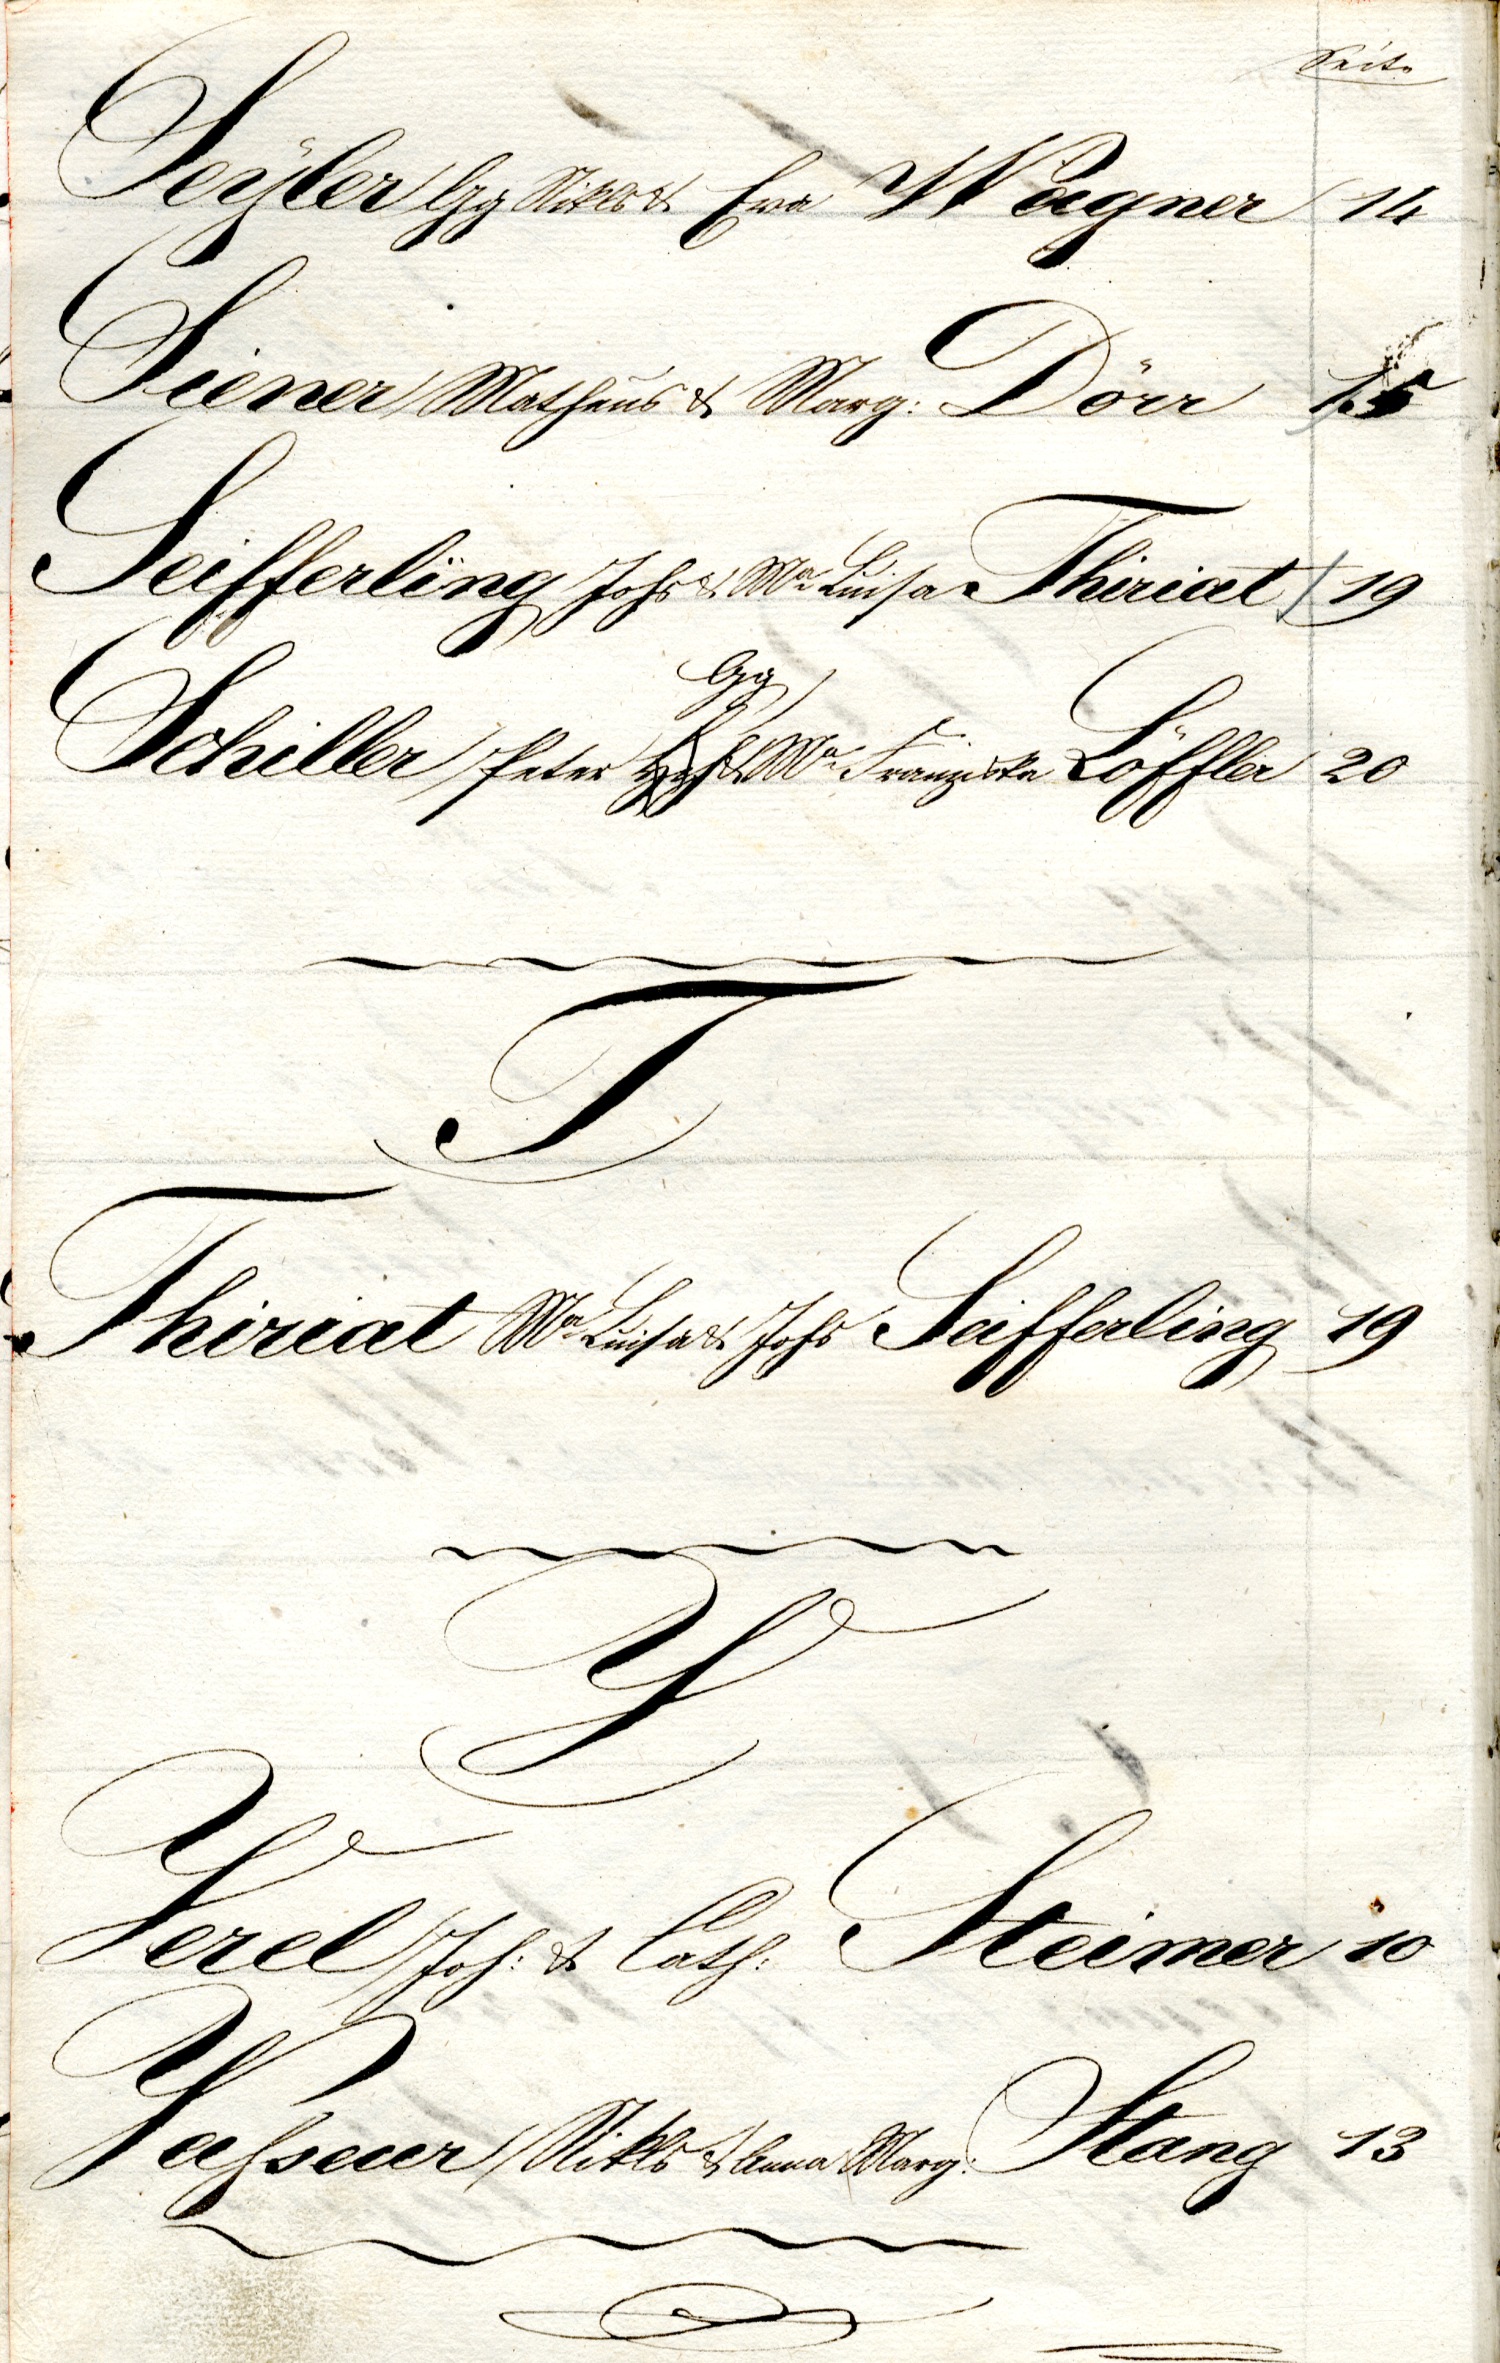 Seite
Seÿler Gg Nikls & Eva Wagner 14
Siener Matheus & Marg: Dörr 15
Seifferling Johs & Ma Luisa Thiriat 19
Gg
Schiller Peter & Ma Franziska Löffler 20
T
Thiriat Ma Luisa & Johs Seifferling 19
V
Verel Joh: & Cath: Steimer 10
Vasseur Nikls & Anna Marg: Stang 13